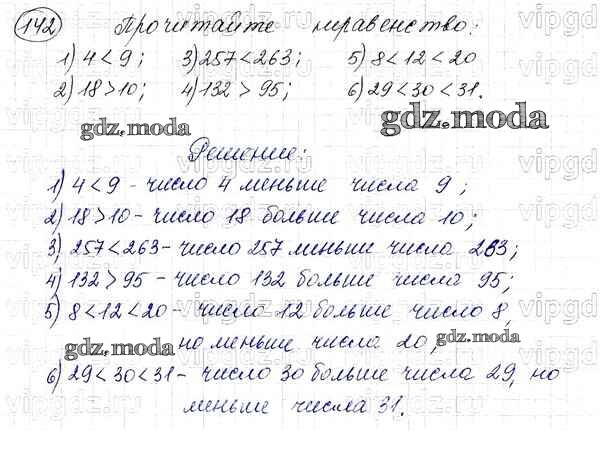 142 Прочитайте неравенство:
1) 4 < 9; 3) 257 < 263; 5) 8 < 12 < 20
2) 18 > 10; 4) 132 > 95; 6) 29 < 30 < 31.
gdz.moda gdz.moda
Решение:
1) 4 < 9 - число 4 меньше числа 9;
2) 18 > 10 - число 18 больше числа 10;
3) 257 < 263 - число 257 меньше числа 263;
4) 132 > 95 - число 132 больше числа 95;
5) 8 < 12 < 20 - число 12 больше число 8,
но меньше числа 20,
gdz.moda gdz.moda
6) 29 < 30 < 31 - число 30 больше числа 29, но
меньше числа 31.